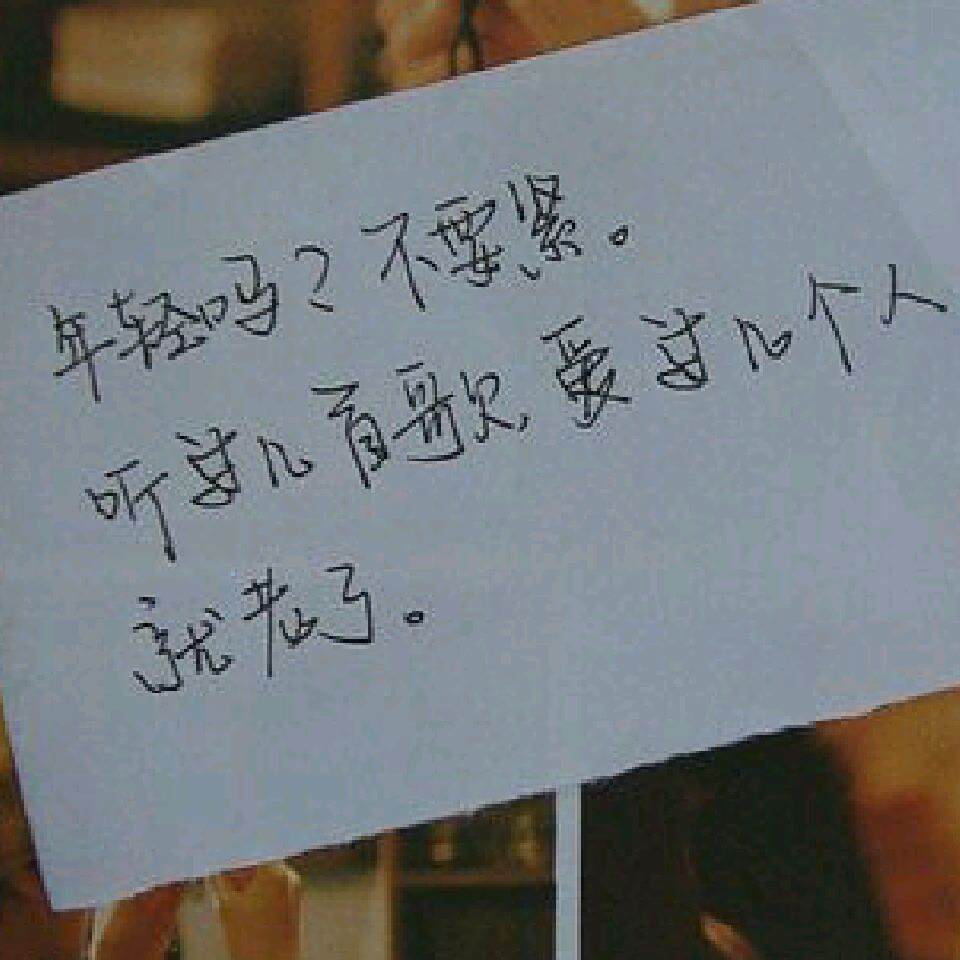 年轻吗?不要紧。
听过几首歌 爱过几个人
就老了。